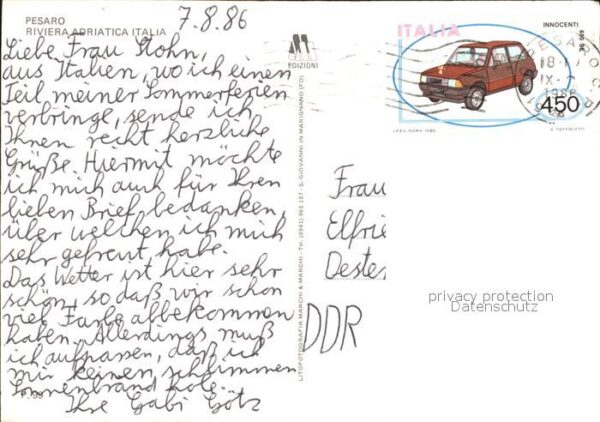 PESARO
RIVIERA ADRIATICA ITALIA
7.8.86
Liebe Frau Stohn,
aus Italien, wo ich einen
Teil meiner Sommerferien
verbringe, sende ich
Ihnen recht herzliche
Grüße. Hiermit möchte
ich mich auch für Ihren
lieben Brief bedanken,
über welchen ich mich
sehr gefreut habe.
Das Wetter ist hier sehr
schön, so daß wir schon
viel Farbe abbekommen
haben. Allerdings muß
ich aufpassen, daß ich
mir keinen schlimmen
Sonnenbrand hole.
Ihre Gabi Götz
EDIZIONI
LITOFOTOGRAFIA MARCHI & MARCHI - Tel. (0541) 955 157 - S. GIOVANNI IN MARIGNANO (FO)
ITALIA
INNOCENTI
650 SE
450
I.P.Z.S.-ROMA-1986
PESARO
18
1986
Frau
Elfrie
Deste
DDR
privacy protection
Datenschutz